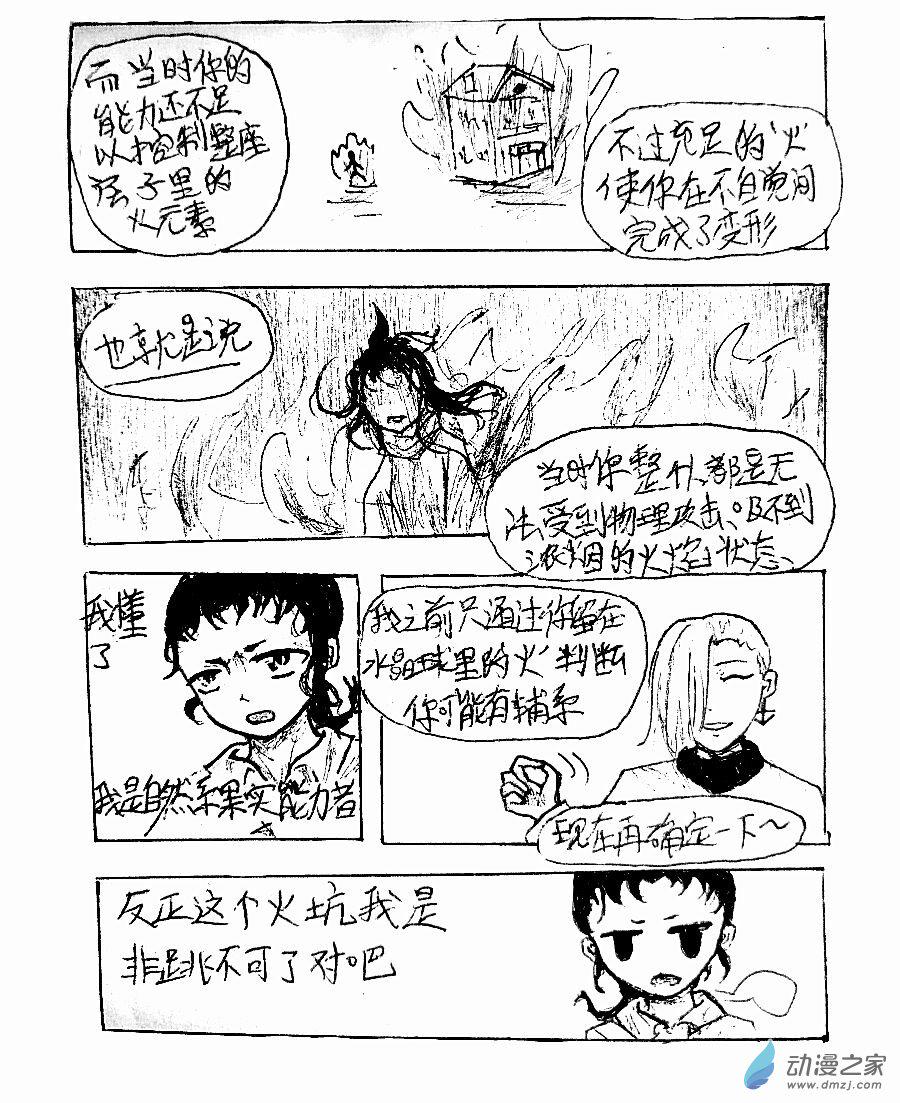 而当时你的
能力还不足
以控制整座
房子里的
火元素
不过充足的‘火’
使你在不自觉间
完成了变形
也就是说
当时你整个人都是无
法受到物理攻击、吸不到
浓烟的火焰状态、
我懂
了
我是自然系果实能力者
我之前只通过你留在
水晶球里的‘火’判断
你可能有辅系
现在再确定一下～
反正这个火坑我是
非跳不可了对吧
动漫之家
www.dmzj.com